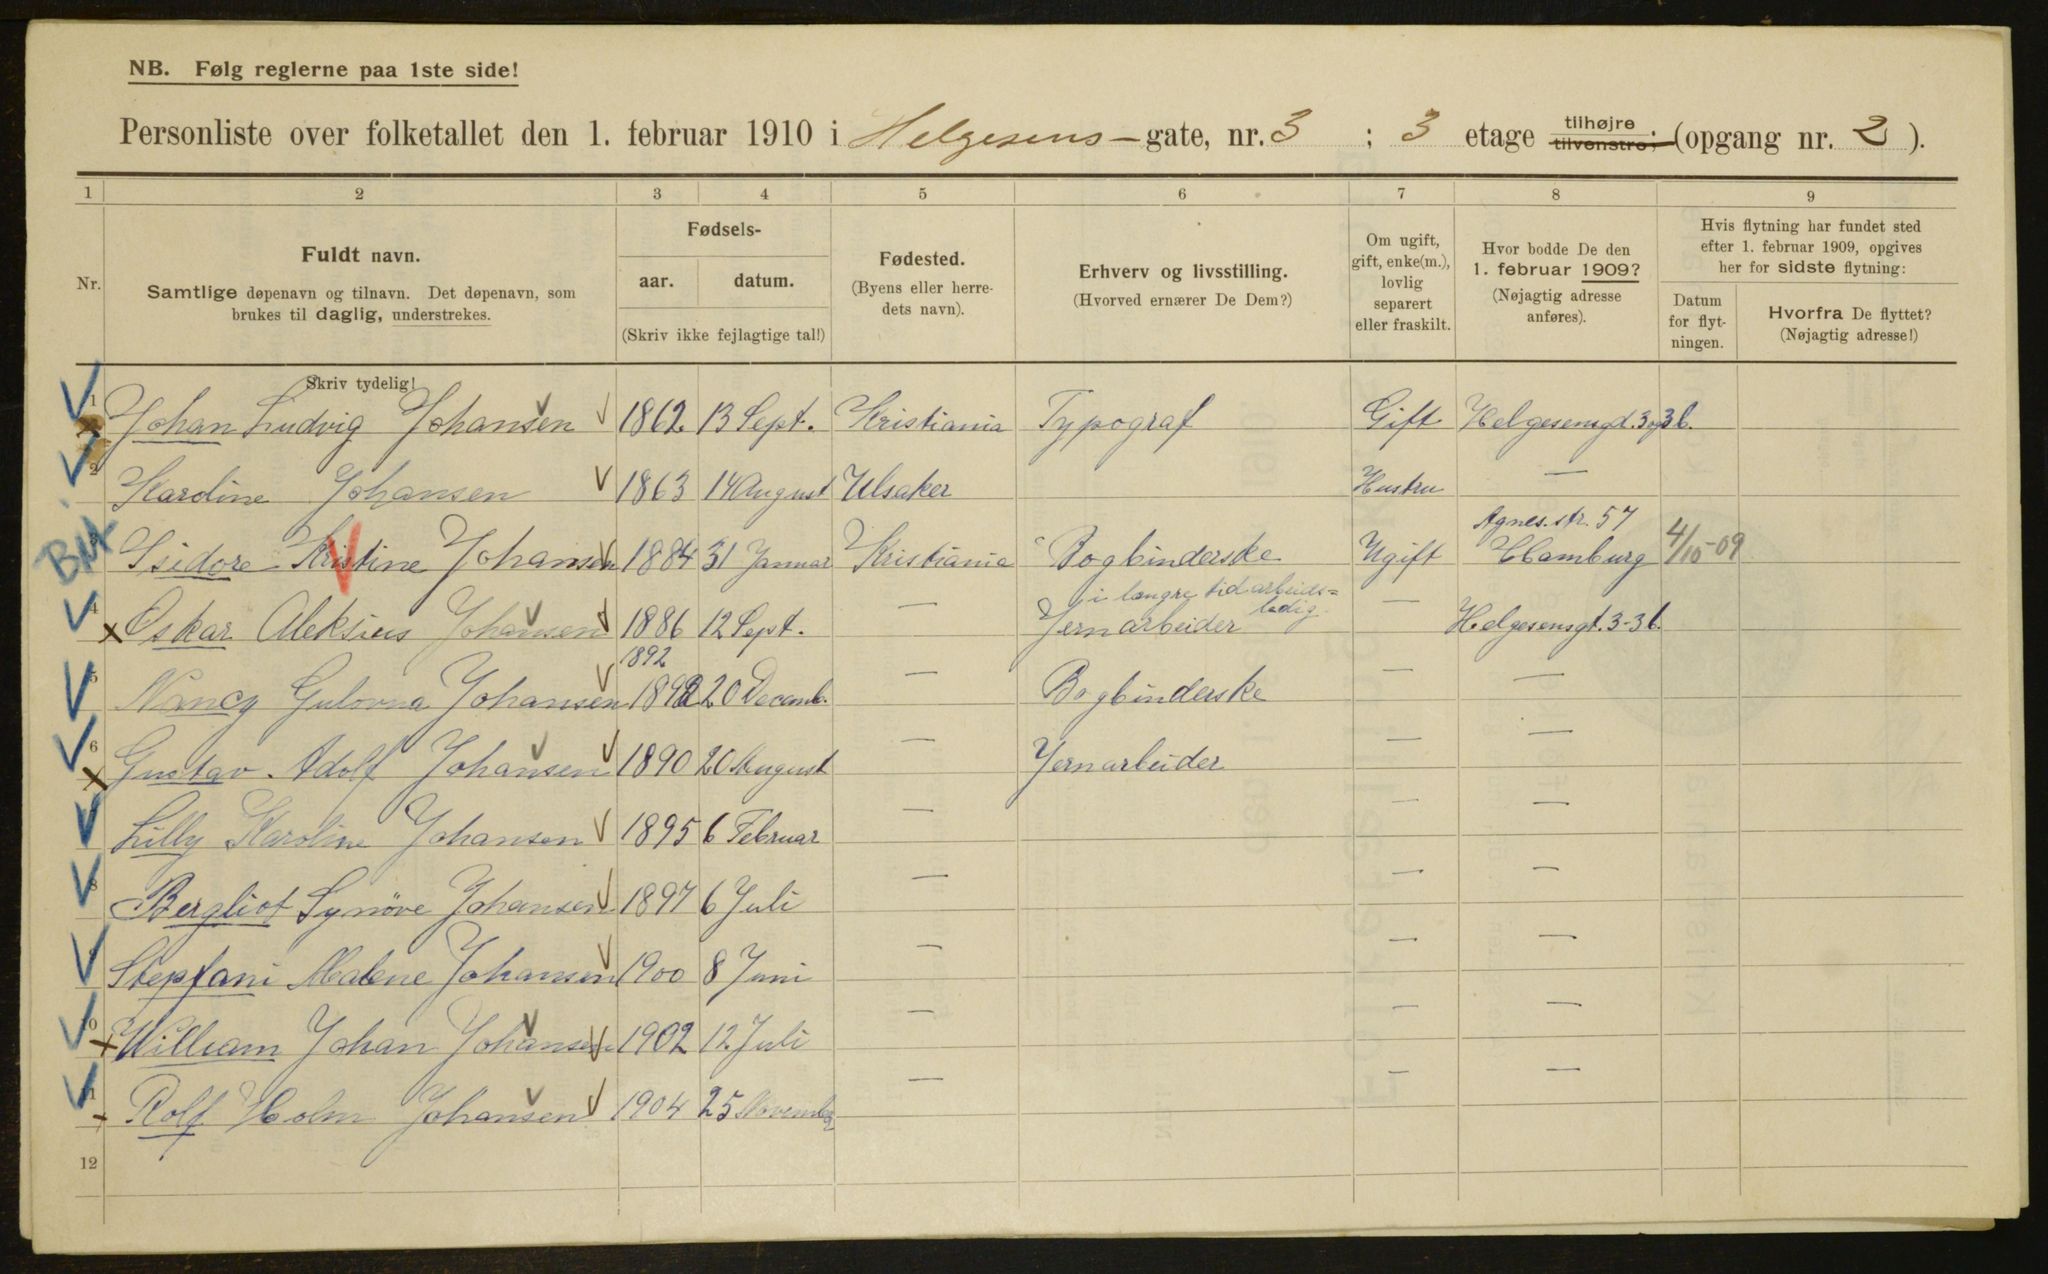 NB. Følg reglerne paa 1ste side!
Personliste over folketallet den 1. februar 1910 i Helgesens-gate, nr. 3 ; 3 etage tilhøjre. tilvenstre, (opgang nr. 2).
1 2 3 4 5 6 7 8 9
Nr.
Fuldt navn.
Samtlige døpenavn og tilnavn. Det døpenavn, som
brukes til daglig, understrekes.
Skriv tydelig!
Fødsels-
aar. datum.
(Skriv ikke fejlagtige tal!)
Fødested.
(Byens eller herre-
dets navn).
Erhverv og livsstilling.
(Hvorved ernærer De Dem?)
Om ugift,
gift, enke(m.),
lovlig
separert
eller fraskilt.
Hvor bodde De den
1. februar 1909?
(Nøjagtig adresse
anføres).
Hvis flytning har fundet sted
efter 1. februar 1909, opgives
her for sidste flytning:
Datum
for flyt-
ningen.
Hvorfra De flyttet?
(Nøjagtig adresse!)
1 Johan Ludvig Johansen 1862 13 Sept. Kristiania Typograf Gift Helgesensgd. 3 og 3 b.
2 Karoline Johansen 1863 14 August Ulsaker Hustru —
3 Isidore Kristine Johansen 1884 31 Januar Kristiania Bogbinderske Ugift Agnes.str. 57 Hamburg 4/10-09
4 Oskar Aleksius Johansen 1886 12 Sept. — Jernarbeider i længre tid arbeids=ledig. — Helgesensgt. 3-3b.
5 Nancy Gulovna Johansen 1892 20 Decemb. — Bogbinderske — —
6 Gustav Adolf Johansen 1890 20 August — Jernarbeider — —
7 Lilly Karoline Johansen 1895 6 Februar — — —
8 Bergliot Synöve Johansen 1897 6 Juli — — —
9 Stepfani Malene Johansen 1900 8 Juni — — —
10 William Johan Johansen 1902 12 Juli — — —
11 Rolf Holm Johansen 1904 25 November — — —
12